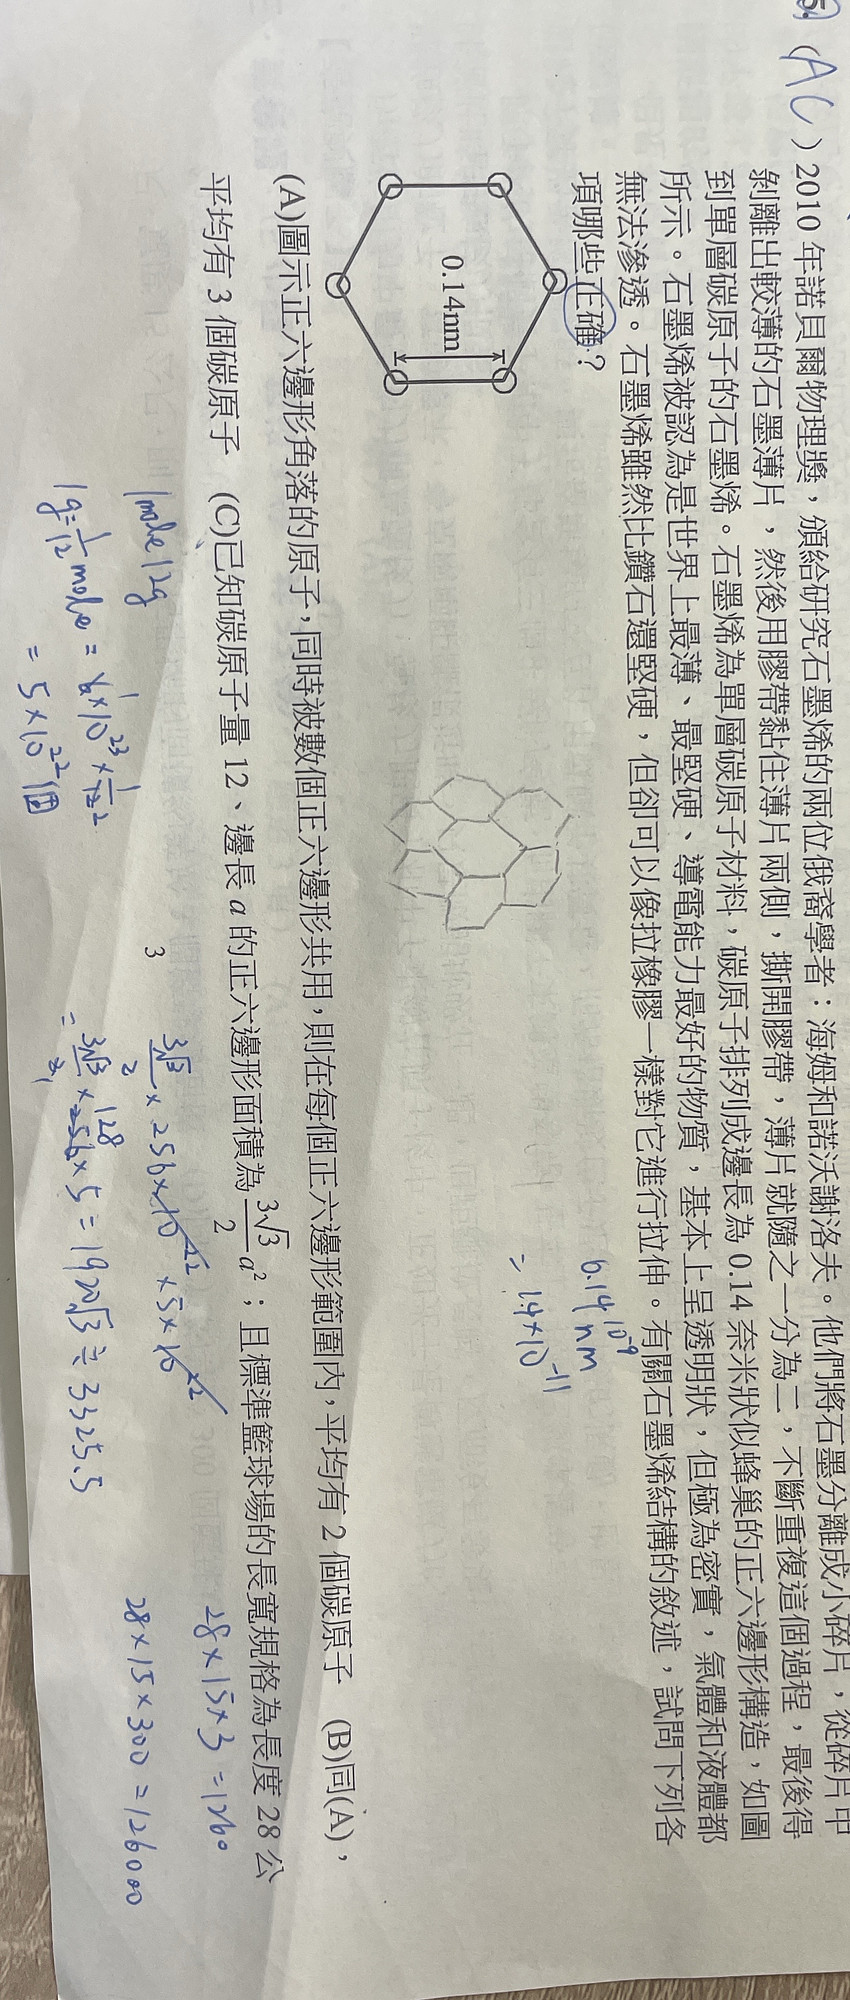 5. (AC) 2010 年諾貝爾物理獎，頒給研究石墨烯的兩位俄裔學者：海姆和諾沃謝洛夫。他們將石墨分離成小碎片，從碎片中
剝離出較薄的石墨薄片，然後用膠帶黏住薄片兩側，撕開膠帶，薄片就隨之一分為二，不斷重複這個過程，最後得
到單層碳原子的石墨烯。石墨烯為單層碳原子材料，碳原子排列成邊長為 0.14 奈米狀似蜂巢的正六邊形構造，如圖
所示。石墨烯被認為是世界上最薄、最堅硬、導電能力最好的物質，基本上呈透明狀，但極為密實，氣體和液體都
無法滲透。石墨烯雖然比鑽石還堅硬，但卻可以像拉橡膠一樣對它進行拉伸。有關石墨烯結構的敘述，試問下列各
項哪些正確？
0.14nm
0.14 nm
10⁻⁹
= 1.4×10⁻¹¹
(A)圖示正六邊形角落的原子，同時被數個正六邊形共用，則在每個正六邊形範圍內，平均有 2 個碳原子　(B)同(A)，
平均有 3 個碳原子　(C)已知碳原子量 12、邊長 a 的正六邊形面積為 3√3/2 a²；且標準籃球場的長寬規格為長度 28 公
28×15×3=1260
28×15×300=126000
1mole 12g
1g=1/12 mole = 6×10²³×1/12
= 5×10²² 個
3
3√3/2 × 256×10⁻²² ×5×10²²
= 3√3/2 × 256 × 5 = 1920√3 ≒ 3325.5
128